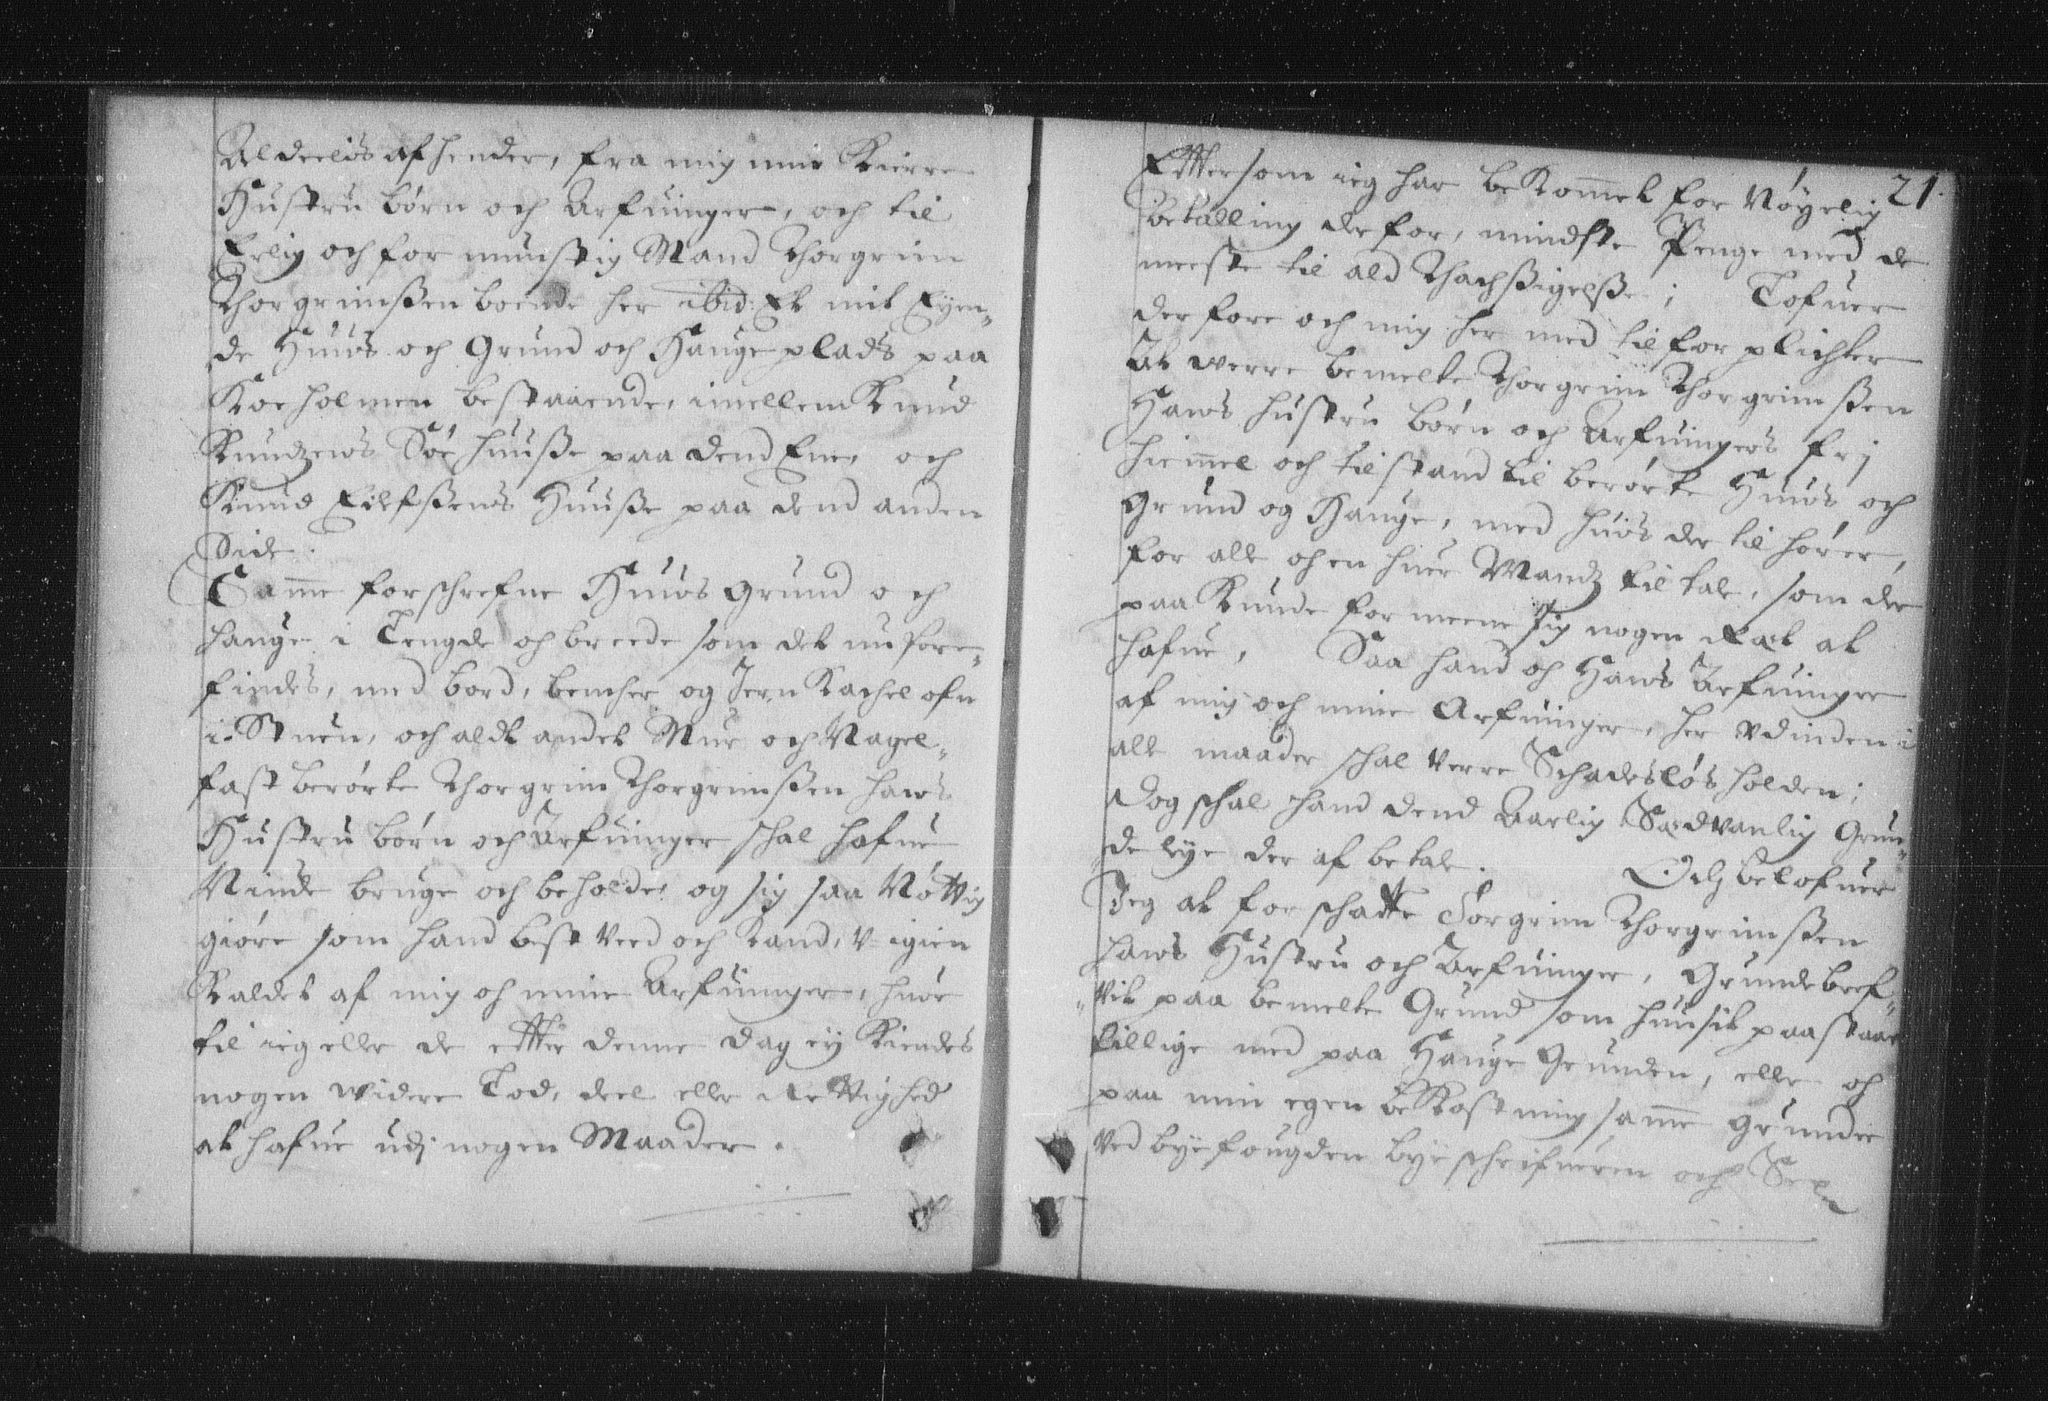 Aldeelis afhender, fra mig min Kierre
Hustru børn och Arfuinger, och til
Erlig och fornunstig Mand Thorgrim
Thorgrimsßen boende her ibid: Et mit Eyen„
de Huus och Grund och Haugeplads paa
Koeholmen bestaaende, imellem Knud
Knudzens Søe huuße paa dend Ene, och
Knud Eilefsßens Huuße paa dend anden
Side.
Samme forschrefne Huus Grund och
Hauge i Lengde och breede som det nu fore„
findes, med bord, bencher og Jern Kachelofn
i Stuen, och aldt andet Muur och Nagel„
fast berørte Thorgrim Thorgrimsßen hans
Hustru børn och Arfuinger schal hafue
Niude bruge och beholde, og sig saa Nøttig
giøre som hand best veed och Kand, V-igien
Kaldet af mig och mine Arfuinger, huor
til ieg eller de effter denne dag ey Kiendes
nogen widere Lod, deel eller Rettighed
at hafue udj nogen Maader.
21.
Effersom ieg har beKommet for Nøyelig
betalling derfor, mindste Penge med de
meeste til ald Thachsßigelsße; Lofuer
derfore och mig her med tilforplichter
At werre bemelte Thorgrim Thorgrimsßen
Hans hustru børn och Arfuingers frj
hiemmel och tilstand til berørte Huus och
Grund og Hauge, med huis der til hører,
for alt och en huer Mandz tiltale, som der
paa Kunde formeene sig nogen Ræt at
hafue, Saa hand och Hans Arfuinger
af mig och mine Arfuinger, her vdinden i
alt maader schal verre Schadesløs holden;
Dog schal hand dend Aarlig Sædvanlig Grun„
„de leye der af betale. Och belofuer
Jeg at forschaffe Torgrim Thorgrimsßen
hans Hustru och Arfuinger, Grundebref„
„vit paa bemelte Grund som huusit paastaar
tillige med paa Hauge Grunden, eller och
paa min egen beKostning samme grunder
ved byefougden byeschrifueren och Sex